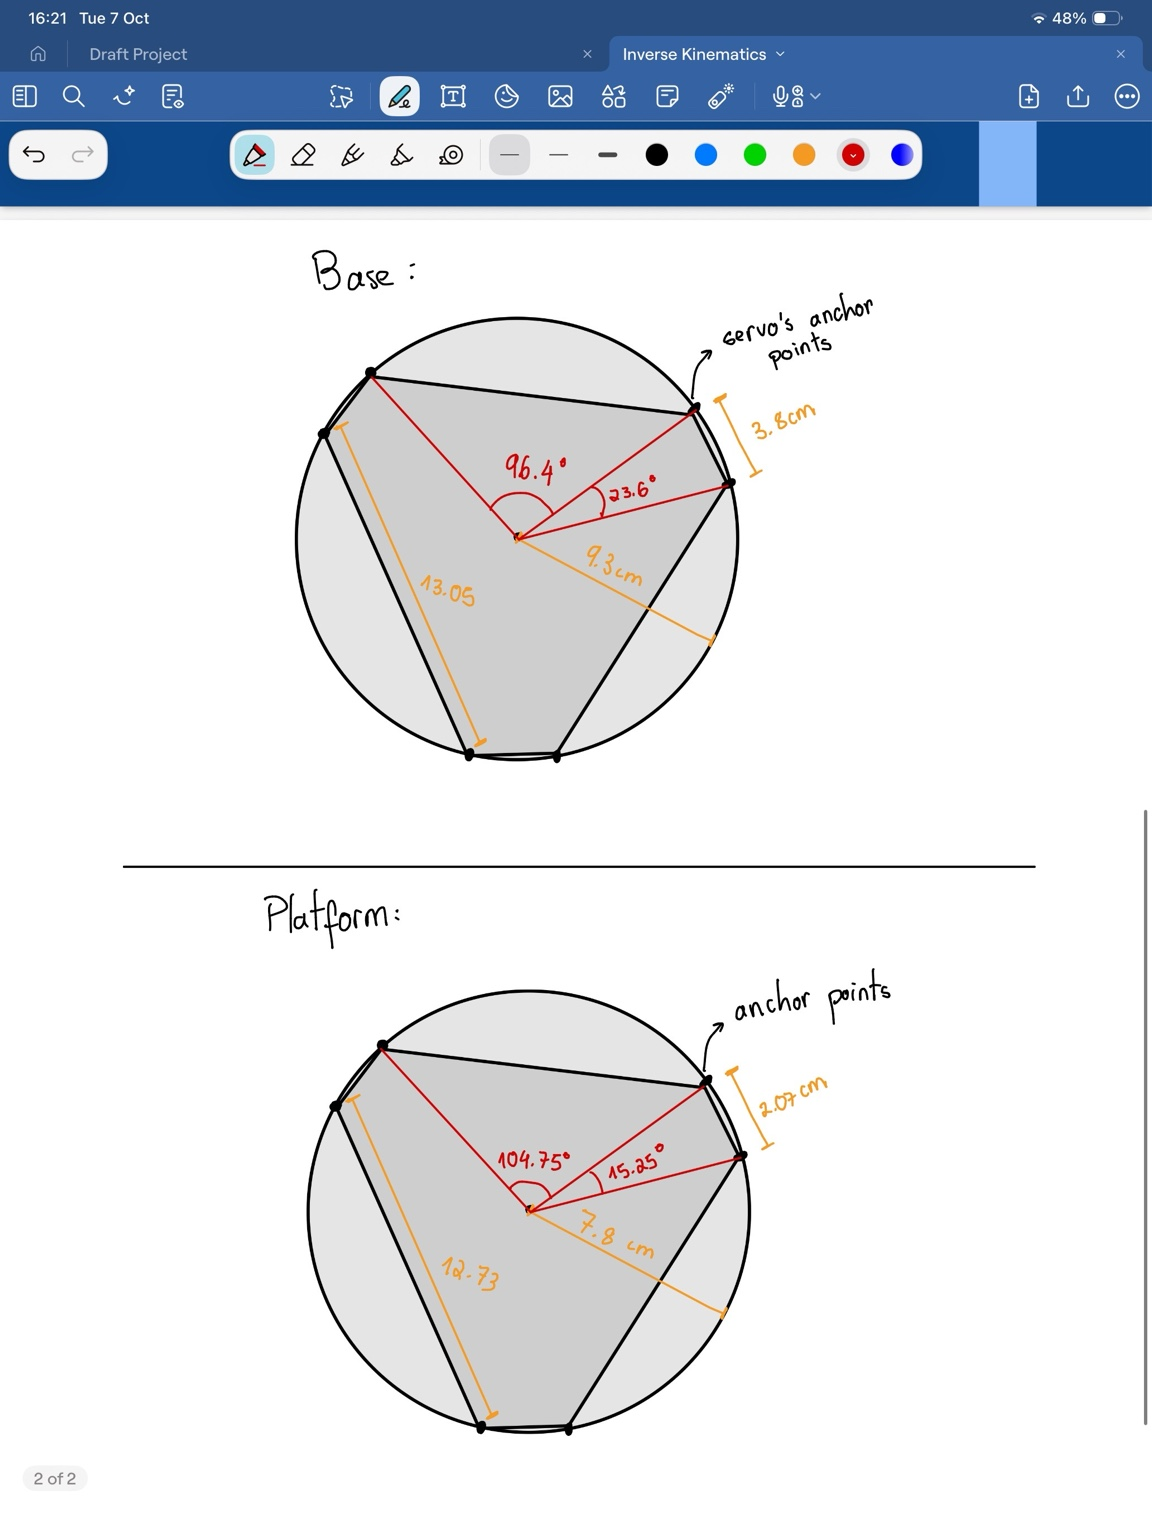 16:21 Tue 7 Oct
48%
Draft Project
Inverse Kinematics
Base :
servo's anchor
points
3.8cm
96.4°
23.6°
9.3cm
13.05
Platform:
anchor points
2.07cm
104.75°
15.25°
7.8 cm
12.73
2 of 2